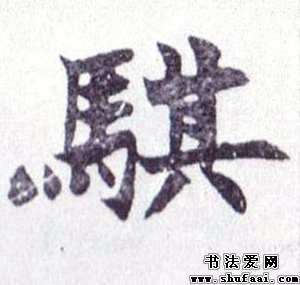 騏
书法爱网
www.shufaai.com